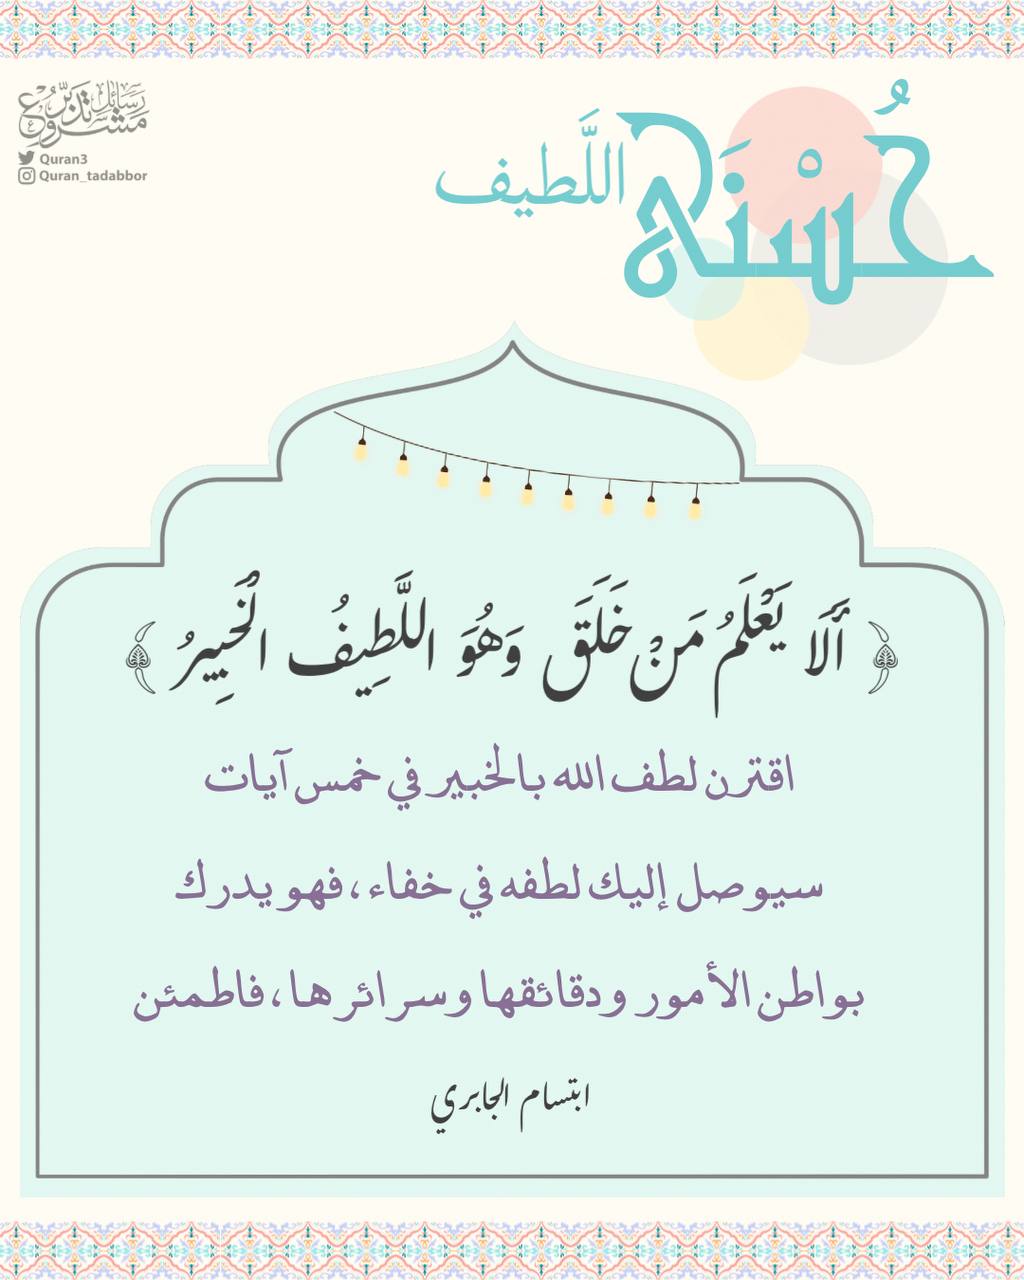 مشروع رسائل تدبر
Quran3
Quran_tadabbor
حُسْنَى
اللَّطيف
﴿ أَلَا يَعْلَمُ مَنْ خَلَقَ وَهُوَ اللَّطِيفُ الْخَبِيرُ ﴾
اقترن لطف الله بالخبير في خمس آيات
سيوصل إليك لطفه في خفاء، فهو يدرك
بواطن الأمور ودقائقها وسرائرها، فاطمئن
ابتسام الجابري